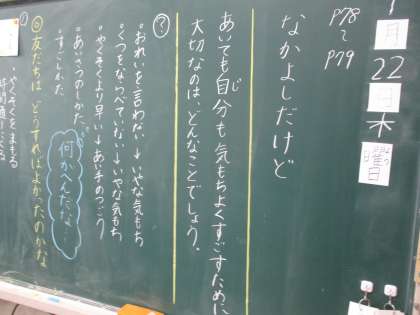 1月22日木曜日
よう
P78
〜
P79
なかよしだけど
あいても自分も気もちよくすごすために
じ
大切なのは、どんなことでしょう。
?
・おれいを言わない→いやな気もち
・くつをならべていない→いやな気もち
・やくそくより早い→あい手のつごう
・あいさつのしかた
何かへんだな…
◎友だちは、どうすればよかったのかな
やくそくをまもる
時間通りにくる